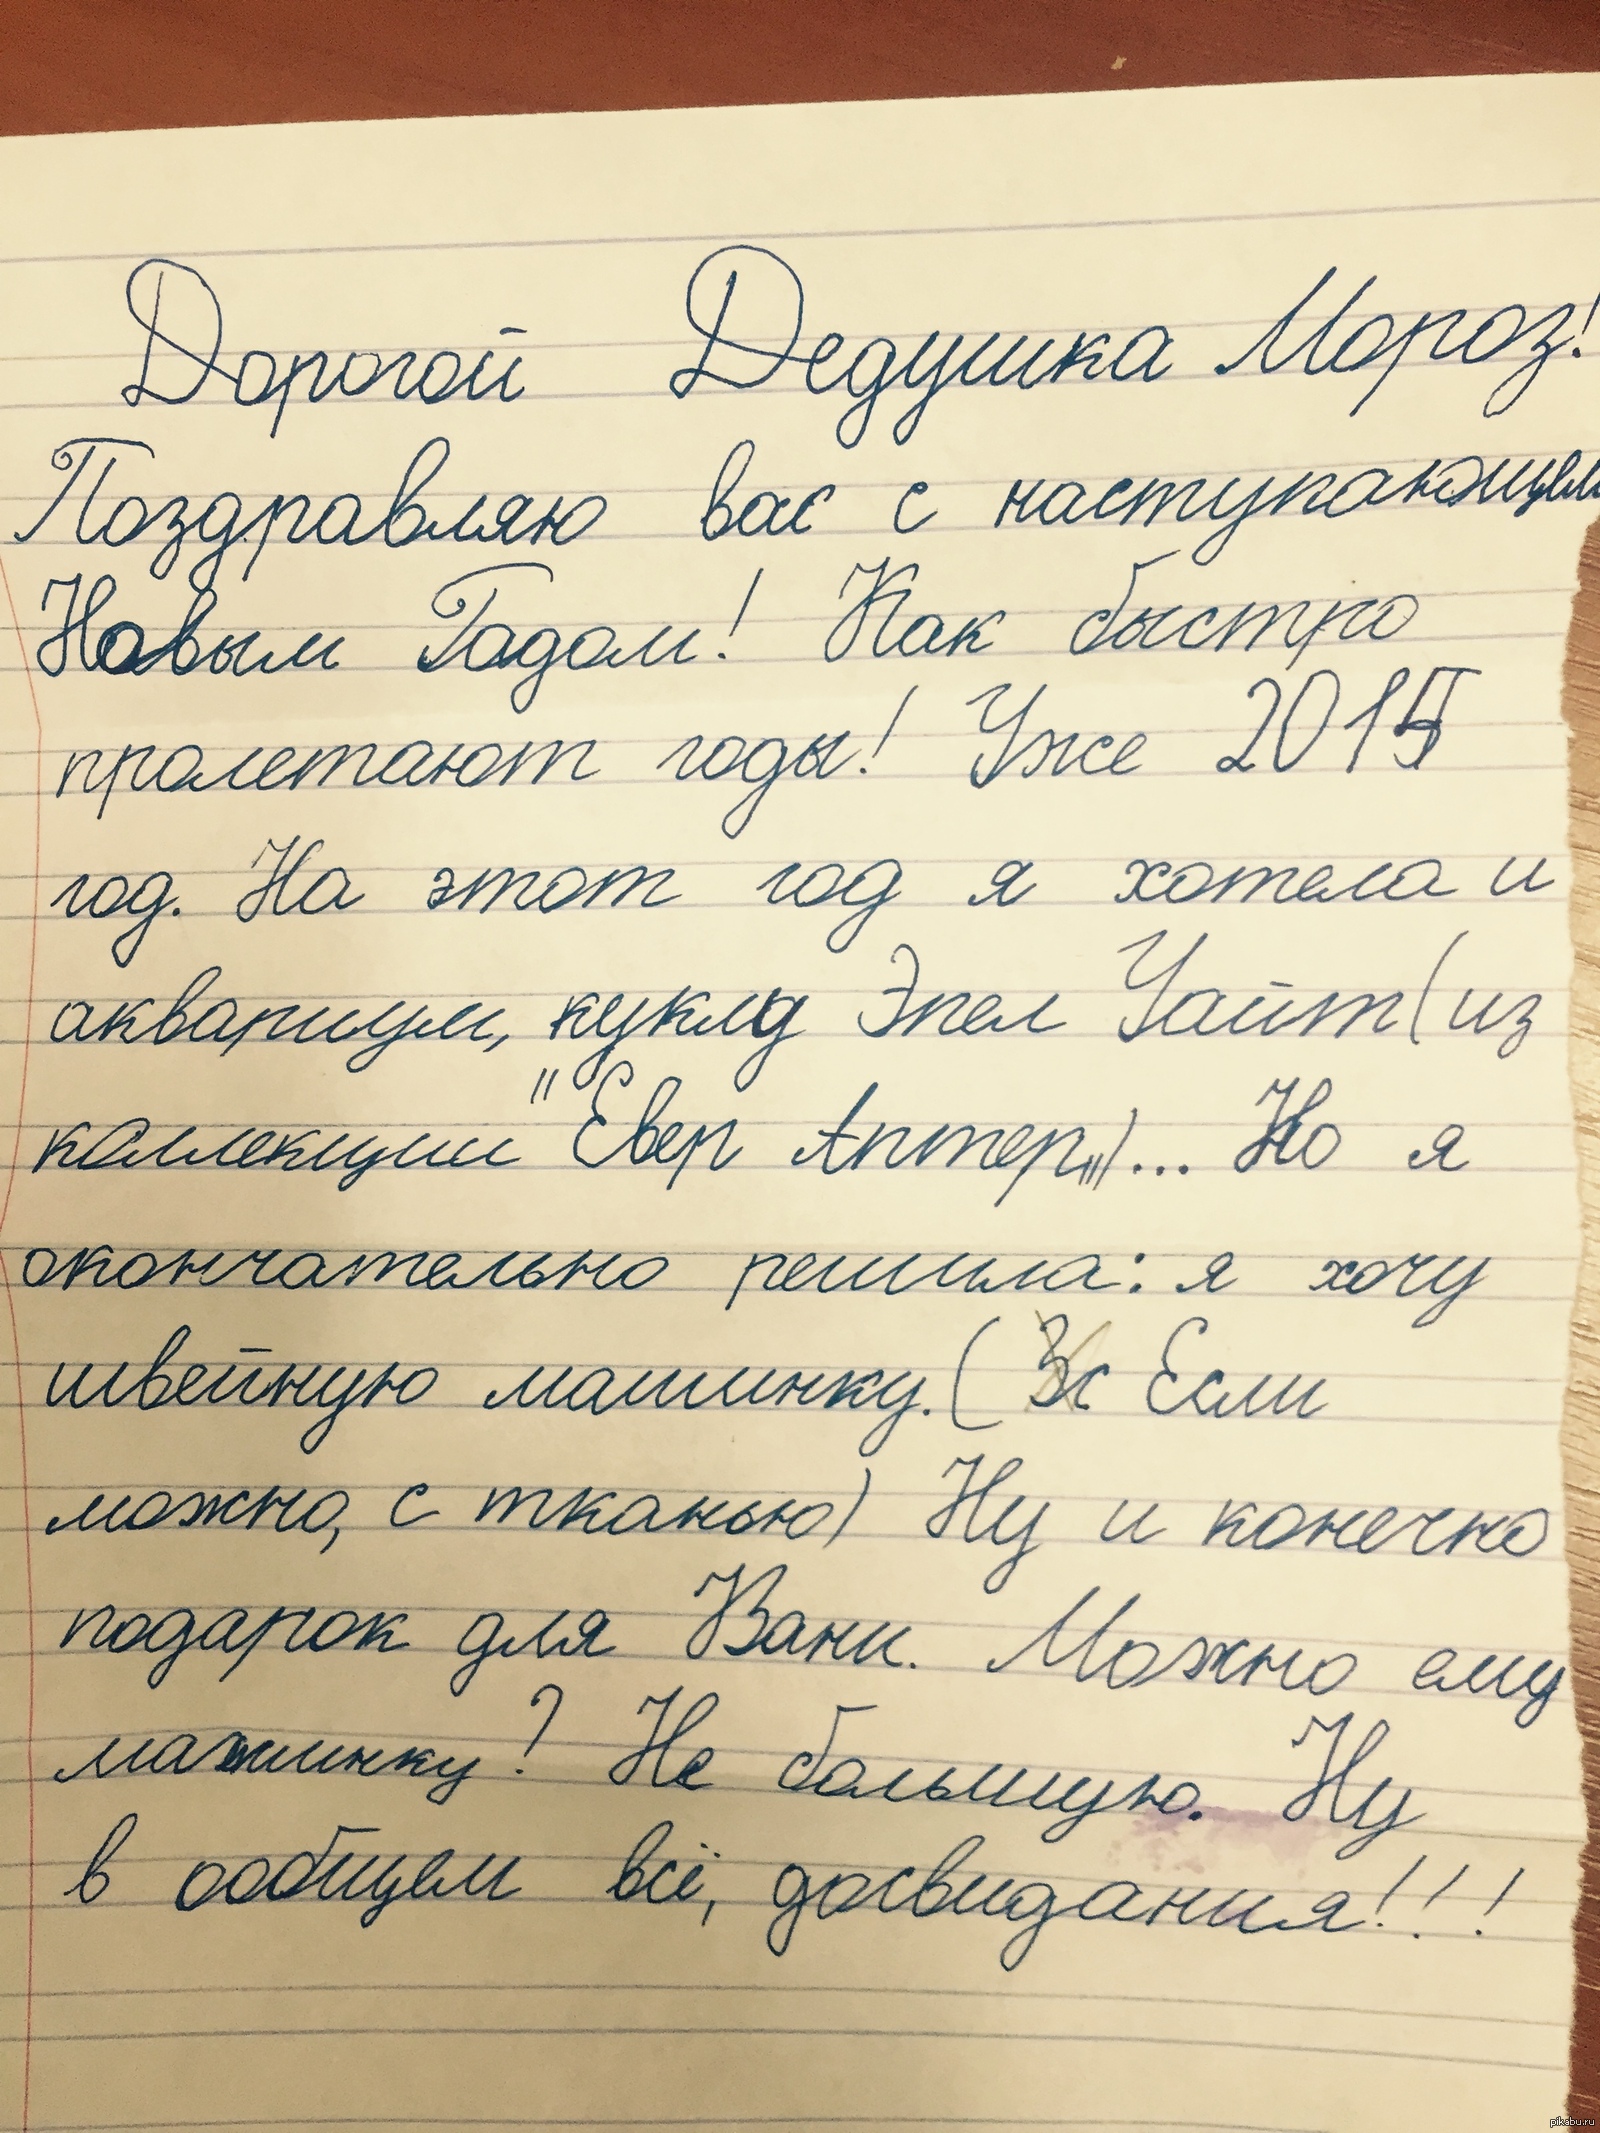 Дорогой Дедушка Мороз!
Поздравляю вас с наступающим
Новым Годом! Как быстро
пролетают годы! Уже 2015
год. На этот год я хотела и
аквариум, куклу Эпел Уайт (из
коллекции "Евер Аптер„)... Но я
окончательно решила: я хочу
швейную машинку. ( Если
можно, с тканью) Ну и конечно
подарок для Вани. Можно ему
машинку? Не большую. Ну
в ообщем всё, досвидания!!!
pikabu.ru